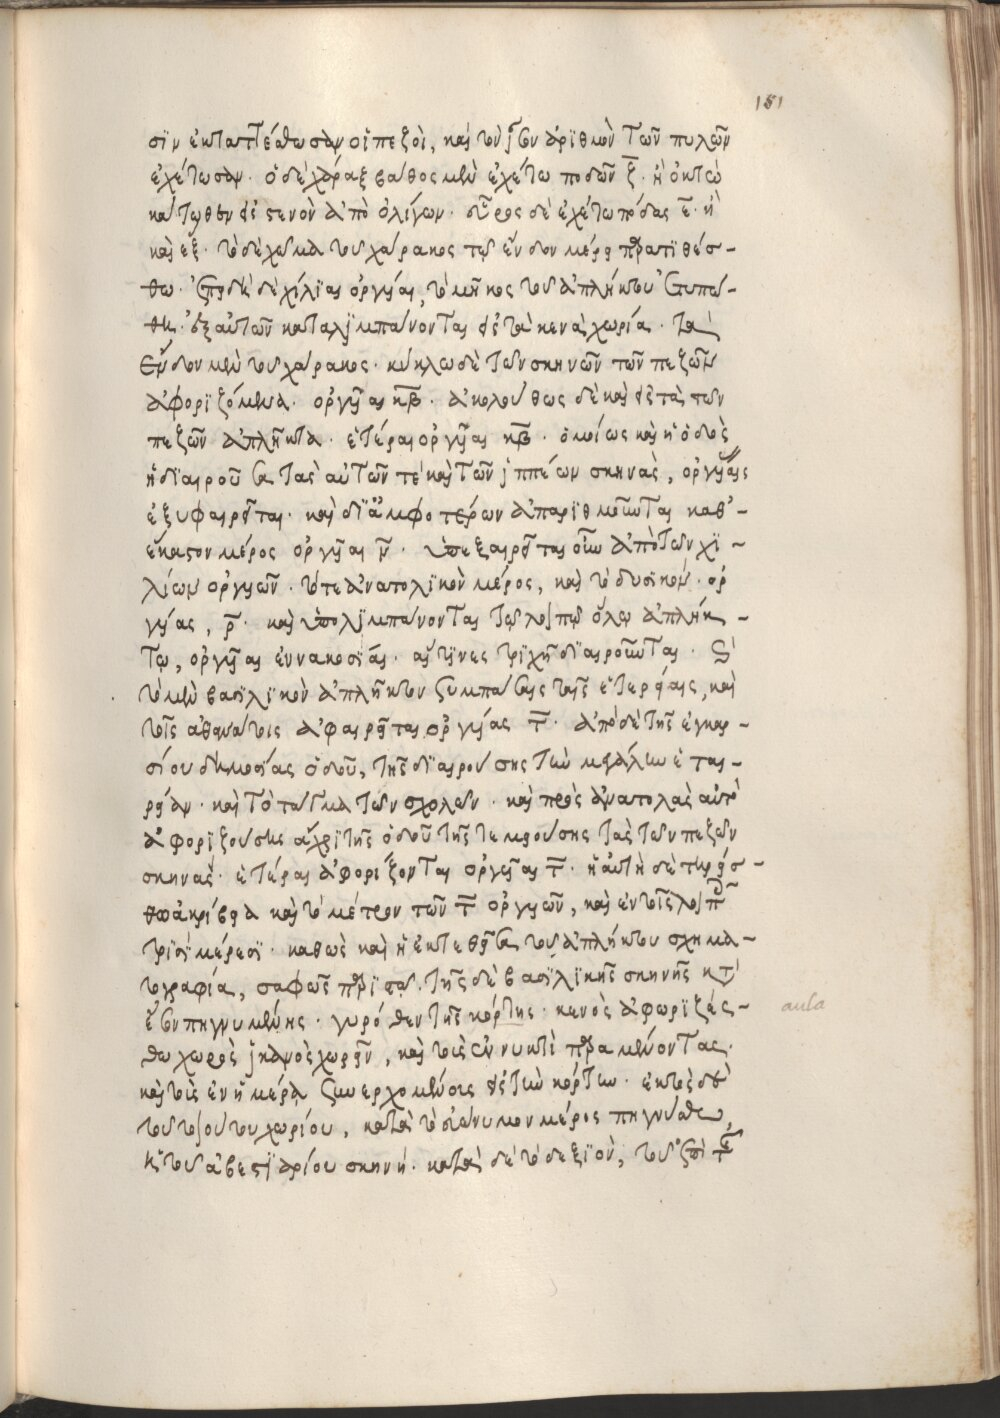 151
σὶν ἐκταττέσθωσαν οἱ πεζοὶ, καὶ τὸν ἴσον ἀριθμὸν τῶν πυλῶν
ἐχέτωσαν. ὁ δὲ χάραξ βάθος μὲν ἐχέτω ποδῶν ζ. ἢ ὀκτὼ
κάτωθεν εἰς στενὸν ἀπὸ ὀλίγων. εὖρος δὲ ἐχέτω πόδας ε. ἢ
καὶ ἕξ. τὸ δὲ χῶμα τοῦ χάρακος τῷ ἔνδον μέρει προστιθέσ-
θω. ἐπεὶ δὲ χίλιαι ὀργυίαι, τὸ μῆκος τοῦ ἀπλήκτου
ἐξ αὐτῶν καταλιμπάνονται εἰς τὰ κενὰ χωρία. τὰ
ἔνδον μὲν τοῦ χάρακος. κύκλω δὲ τῶν σκηνῶν τῶν πεζῶν
ἀφοριζόμενα. ὀργυίας κβ. ἀκολούθως δὲ καὶ εἰς τὰ τῶν
πεζῶν ἀπλῆκτα. ἑτέραι ὀργυίας κβ. ὁμοίως καὶ ἡ ὁδὸς
ἡ διαιροῦσα τὰς αὐτῶν τὲ καὶ τῶν ἱππέων σκηνὰς, ὀργυίαις
ἐξυφαιρεῖται. καὶ δι ἀμφοτέρων ἀπαριθμοῦνται καθ’-
ἕκαστον μέρος ὀργυίαι ν. ὑπεξαιρεῖται οὖν ἀπὸ τῶν χι-
λίων ὀργυιῶν. τό τε ἀνατολικὸν μέρος, καὶ τὸ δυσικόν. ὀρ
γυίας, ρ. καὶ ὑπολιμπάνονται τῷ λοιπῷ ὅλῳ ἀπλήκ-
τῳ, ὀργυίας ἐννακοσίας. αἵτινες τριχῆ διαιροῦνται.
τὸ μὲν βασιλικὸν ἀπλῆκτον συμπάσαις ταῖς ἑτερείαις, καὶ
τοῖς ἀθανάτοις ἀφαιρεῖται ὀργυίας τ. ἀπὸ δὲ τῆς ἐγκαρ-
σίου δημοσίας ὁδοῦ, τῆς διαιρούσης τὴν μεγάλην ἑται-
ρείαν. καὶ τὸ τάγμα τῶν σχολῶν. καὶ πρὸς ἀνατολὰς αὐτὸ
ἀφοριζούσης ἄχρι τῆς ὁδοῦ τῆς τεμνούσης τὰς τῶν πεζῶν
σκηνὰς. ἑτέρας ἀφορίζονται ὀργυίας τ. ἡ αὐτὴ δὲ τηρείσ-
θω ἀκρίβεια καὶ τὸ μέτρον τῶν τ ὀργυιῶν, καὶ ἐν τοῖς λοιποῖς
τρισὶ μέρεσι. καθὼς καὶ ἡ ἐκτεθεῖσα τοῦ ἀπλήκτου σχημα-
τογραφία, σαφῶς παρίστησι. τῆς δὲ βασιλικῆς σκηνῆς κατ
ἔσον πηγνυμένης. γυρόθεν τῆς κόρτης. κενὸς ἀφωριζέσ-
θω χῶρος ἱκανὸς χωρεῖν, καὶ τοὺς ἐν νυκτὶ παραμένοντας.
καὶ τοὺς ἐν ἡμέρᾳ συνερχομένους εἰς τὴν κόρτην. ἐκτὸς δὲ
τοῦ τοιούτου χωρίου, κατὰ τὸ εὐώνυμον μέρος πηγνύσθω,
ἡ τοῦ ἀβεστιαρίου σκηνή. κατὰ δὲ τὸ δεξιὸν, τοῦ ἐπὶ τῆς
aula